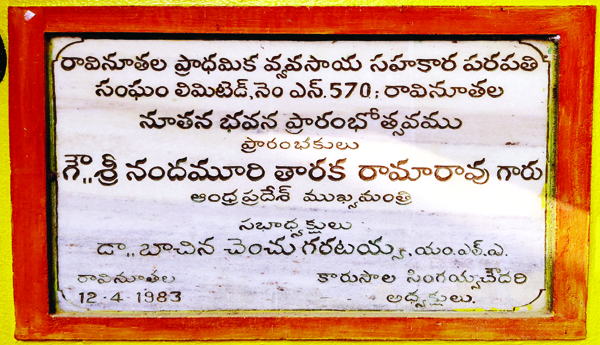 రావినూతల ప్రాధమిక వ్యవసాయ సహకార పరపతి
సంఘం లిమిటెడ్,నెం ఎన్.570; రావినూతల
నూతన భవన ప్రారంభోత్సవము
ప్రారంభకులు
గౌ,, శ్రీ నందమూరి తారక రామారావు గారు
ఆంధ్ర ప్రదేశ్ ముఖ్యమంత్రి
సభాధ్యక్షులు
డా,, బాచిన చెంచు గరటయ్య, యం.ఎల్.ఎ.
రావినూతల
12-4-1983
కారుసాల సింగయ్యచౌదరి
అధ్యక్షులు.